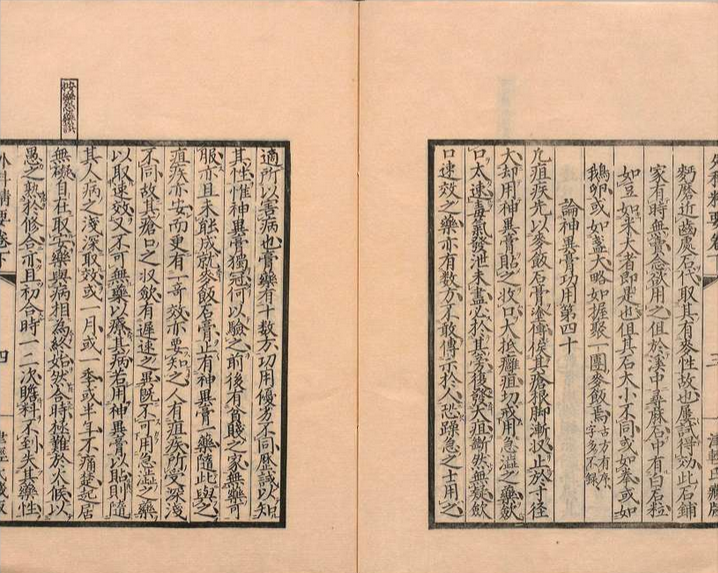 麪磨近齒處石代取其有麥性故也屢試得効此石鋪
家有時無意念欲用之但於溪中尋蔴石中有白石粒
如豆如米大者即是也但其石大小不同或如拳或如
鵝卵或如盞大略如握聚一團麥飯焉古方有序字多不錄
論神異膏功用第四十
凡疽疾先以麥飯石膏塗傅俟其瘡根脚漸收止於寸徑
大却用神異膏貼之收口大抵癰疽切戒用急澁之藥斂
口太速毒氣發泄未盡必於其旁復發大疽斷然無疑斂
口速效之藥亦有數方不敢傳示於人恐躁急之士用之
適所以害病也膏藥有十數方功用優劣不同歷試以知
其性惟神異膏獨冠何以驗之前後有貧賤之家無藥可
服亦且未能成就麥飯石膏止有神異膏一藥隨此與之
疽疾亦安而更有一奇效亦要知之人有疽疾所受深淺
不同故其瘡口之收斂有遲速之異既不可用急澁之藥
以取速效又不可無藥以療其病若用神異膏以貼則隨
其人病之淺深取效或一月或一季或半年不痛楚起居
無礙自在取安藥與病相為終始然合時極難於火候以
愚之熟於修合亦且初合時一二次贍料不到失其藥性
外科精要卷下
四